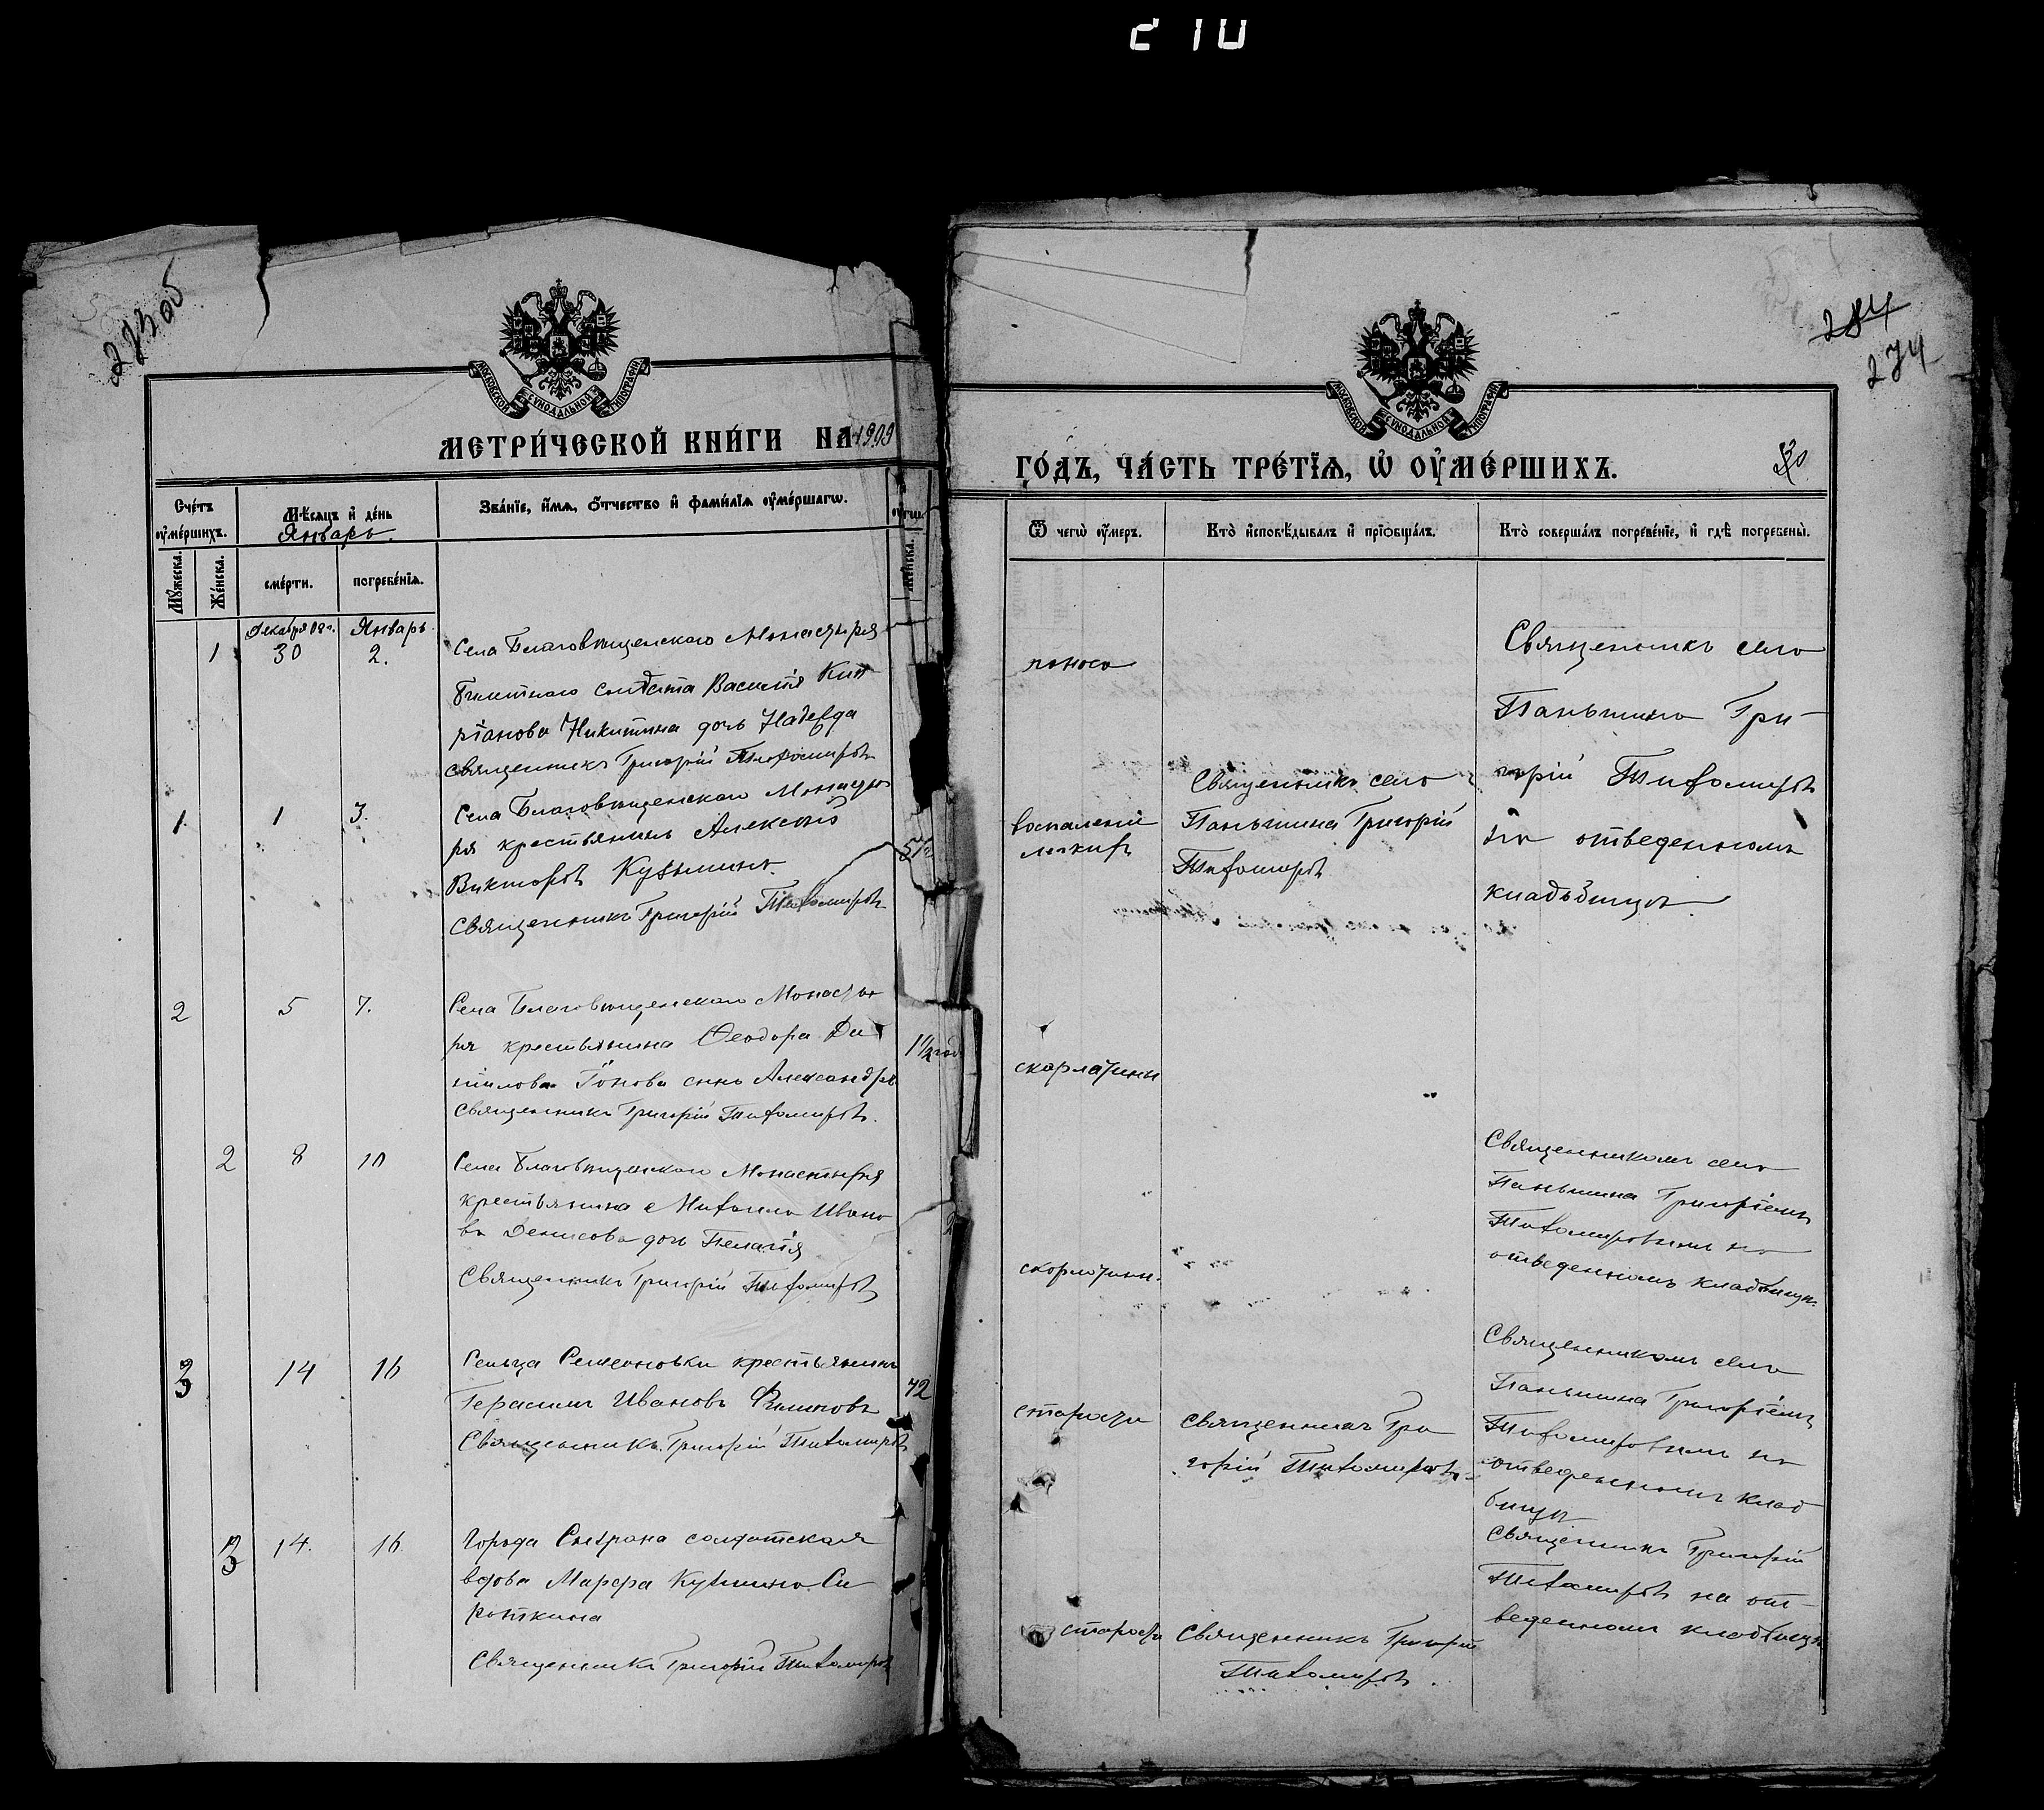 210
273об
МОСКОВСКОЙ СѴНОДАЛЬНОЙ ТИПОГРАФІИ
МЕТРИ́ЧЕСКОЙ КНИ́ГИ НА 1909
Сче́тъ ᲂу҆ме́ршихъ.
Мѣ́сяцъ и҆ де́нь
Январь.
Зва́нїе, и҆́мѧ, ѻ҆́тчество и҆ фами́лїѧ ᲂу҆ме́ршагѡ.
Мꙋ́жеска.
Же́нска.
сме́рти.
погребе́нїѧ.
Же́нска.
1
Декабря 08 г.
30
Январь
2.
Села Благовѣщенскаго Монастыря
билетнаго солдата Василія Кип
ріанова Никитина дочь Надежда
Священникъ Григорій Тихомировъ
1.
1
3.
Села Благовѣщенскаго Монасты
ря крестьянинъ Алексѣй
Викторовъ Кузьминъ.
Священникъ Григорій Тихомировъ
2
5
7.
Села Благовѣщенскаго Монасты
ря крестьянина Ѳеодора Да
нилова Іонова сынъ Александръ
Священникъ Григорій Тихомировъ.
1½ год
2
8
10
Села Благовѣщенскаго Монастыря
крестьянина Михаила Ивано
ва Денисова дочь Пелагія
Священникъ Григорій Тихомировъ
3
14
16
Сельца Семеновки крестьянинъ
Герасимъ Ивановъ Филиповъ
Священникъ Григорій Тихомировъ
72
3
14.
16
Города Сызрана солдатская
вдова Марфа Кузмина Си
роткина
Священникъ Григорій Тихомировъ
284
274
МОСКОВСКОЙ СѴНОДАЛЬНОЙ ТИПОГРАФІИ
ГО́ДЪ, ЧА́СТЬ ТРЕ́ТЇѦ, Ѡ҆ ОУ҆МЕ́РШИХЪ.
Ѿ чегѡ̀ ᲂу҆́меръ.
Кто̀ и҆сповѣ́дывалъ и҆ прїѻбща́лъ.
Кто̀ соверша́лъ погребе́нїе, и҆ гдѣ̀ погребены̀.
поноса
Священникъ села
Паньшина Гри-
горій Тихомировъ
на отведенномъ
кладбищѣ.
воспаленія
легкихъ
Священникъ села
Паньшина Григорій
Тихомировъ
скарлатины
скорлатины.
Священникомъ села
Паньшина Григоріемъ
Тихомировымъ на
отведенномъ кладбищѣ.
старости
Священникъ Гри
горій Тихомировъ.
Священникомъ села
Паньшина Григоріемъ
Тихомировымъ на
отведенномъ клад
бищѣ
старости
Священникъ Григорій
Тихомировъ.
Священникъ Григорій
Тихомировъ на от-
веденномъ кладбищѣ